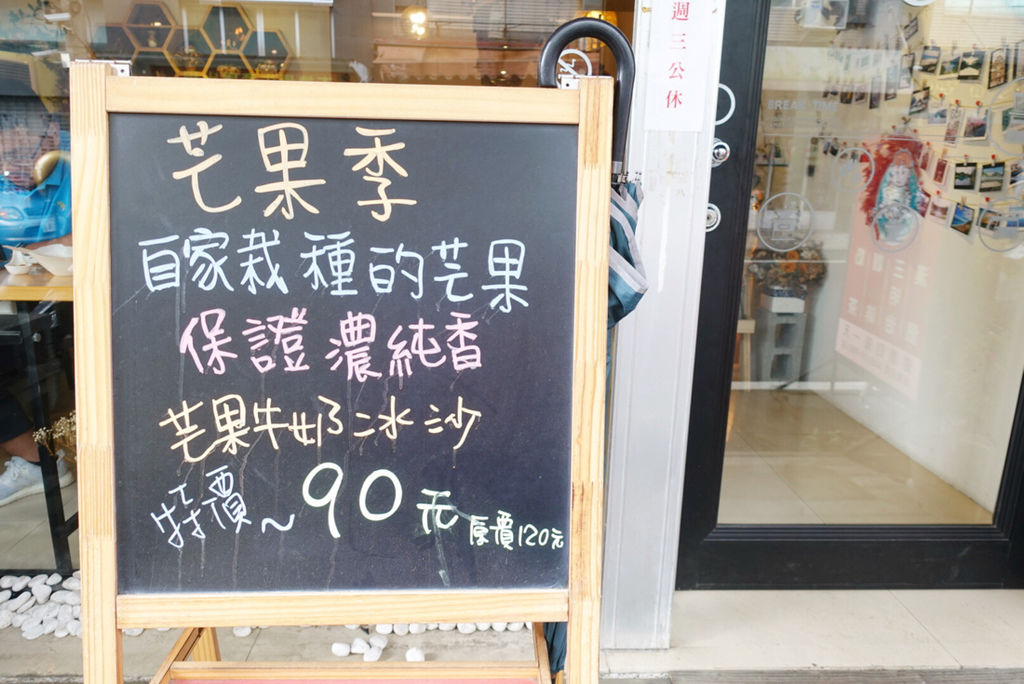 芒果季
自家栽種的芒果
保證濃純香
芒果牛奶冰沙
特價~90元 原價120元
週三公休
BREAK TIME